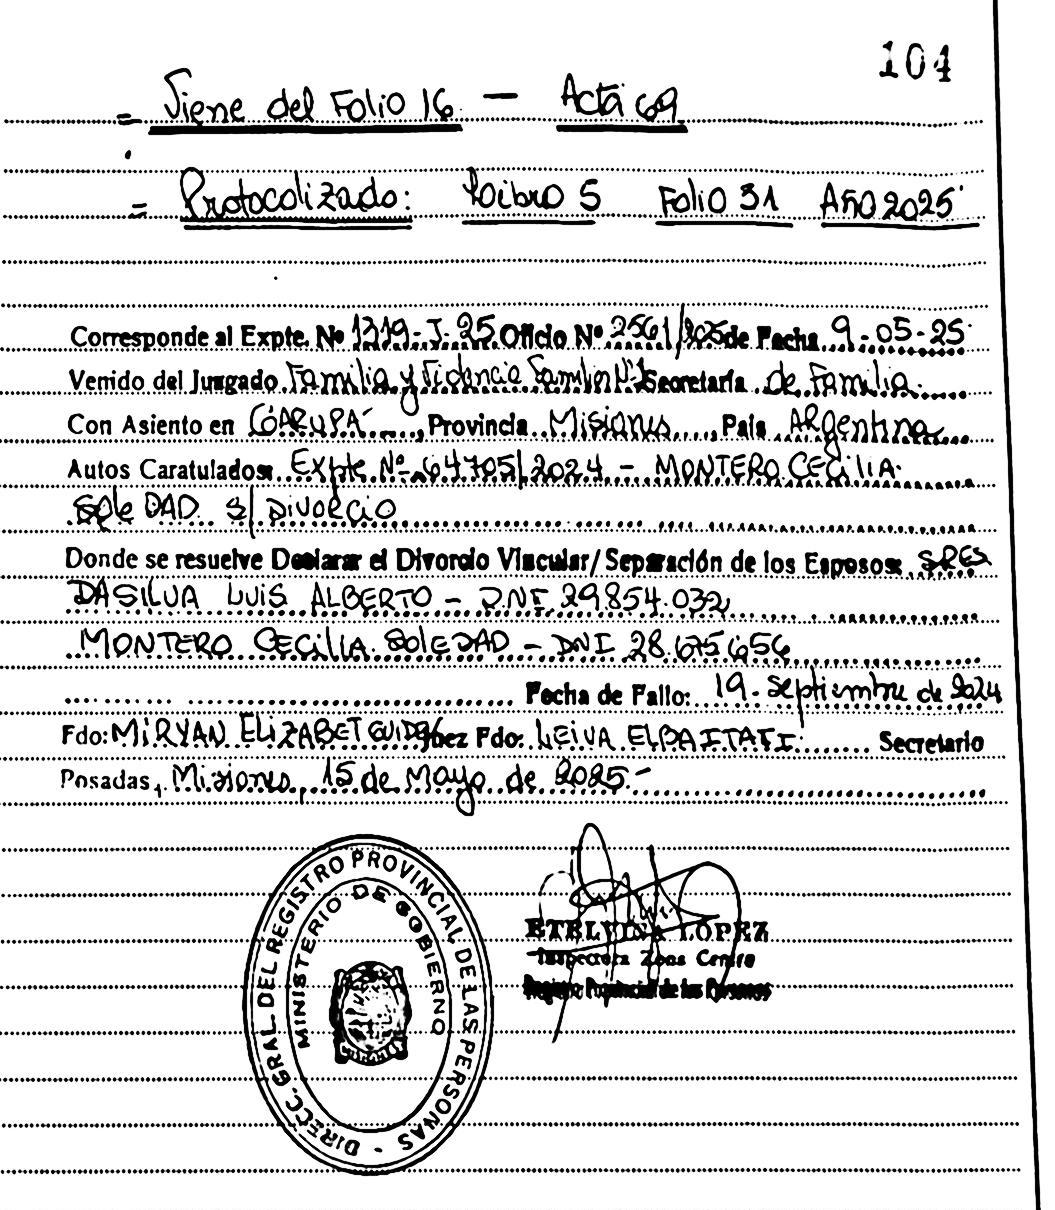 104
= Viene del Folio 16 — Acta 69
= Protocolizado: Libro 5 Folio 31 Año 2025
Corresponde al Expte. Nº 1319-J-25 Oficio Nº 2561/2025 de Fecha 9-05-25
Venido del Juzgado Familia y Violencia Familiar Nº1 Secretaría de Familia
Con Asiento en GARUPÁ, Provincia Misiones, País ARgentina
Autos Caratulados: Expte Nº 64705/2024 - MONTERO CECILIA
SOleDAD s/ DiVORCiO
Donde se resuelve Declarar el Divorcio Vincular/ Separación de los Esposos: SRES
DASILVA LUIS ALBERTO - DNI 29.854.032
MONTERO CECiliA SOleDAD - DNI 28.675.656
Fecha de Fallo: 19 - Septiembre de 2024
Fdo: MiRYAN ELiZABET Juez Fdo: LEIVA ELBA ITATI Secretario
Posadas, Misiones, 15 de Mayo de 2025.-
DIRECC. GRAL. DEL REGISTRO PROVINCIAL DE LAS PERSONAS -
MINISTERIO DE GOBIERNO
ETELVINA LOPEZ
Inspectora Zona Centro
Registro Provincial de las Personas